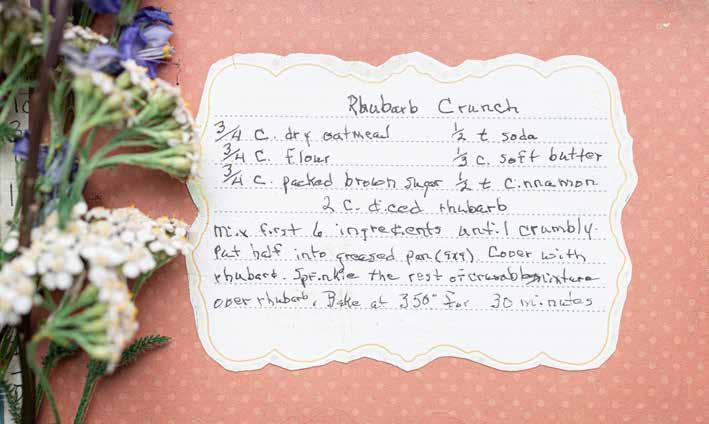 Rhubarb Crunch
3/4 c. dry oatmeal 1/2 t soda
3/4 c. flour 1/3 c. soft butter
3/4 c. packed brown sugar 1/2 t cinnamon
2 c. diced rhubarb
Mix first 6 ingredients until crumbly.
Put half into greased pan Cover with
rhubarb. Sprinkle the rest of mixture
over rhubarb. Bake at 350° for 30 minutes